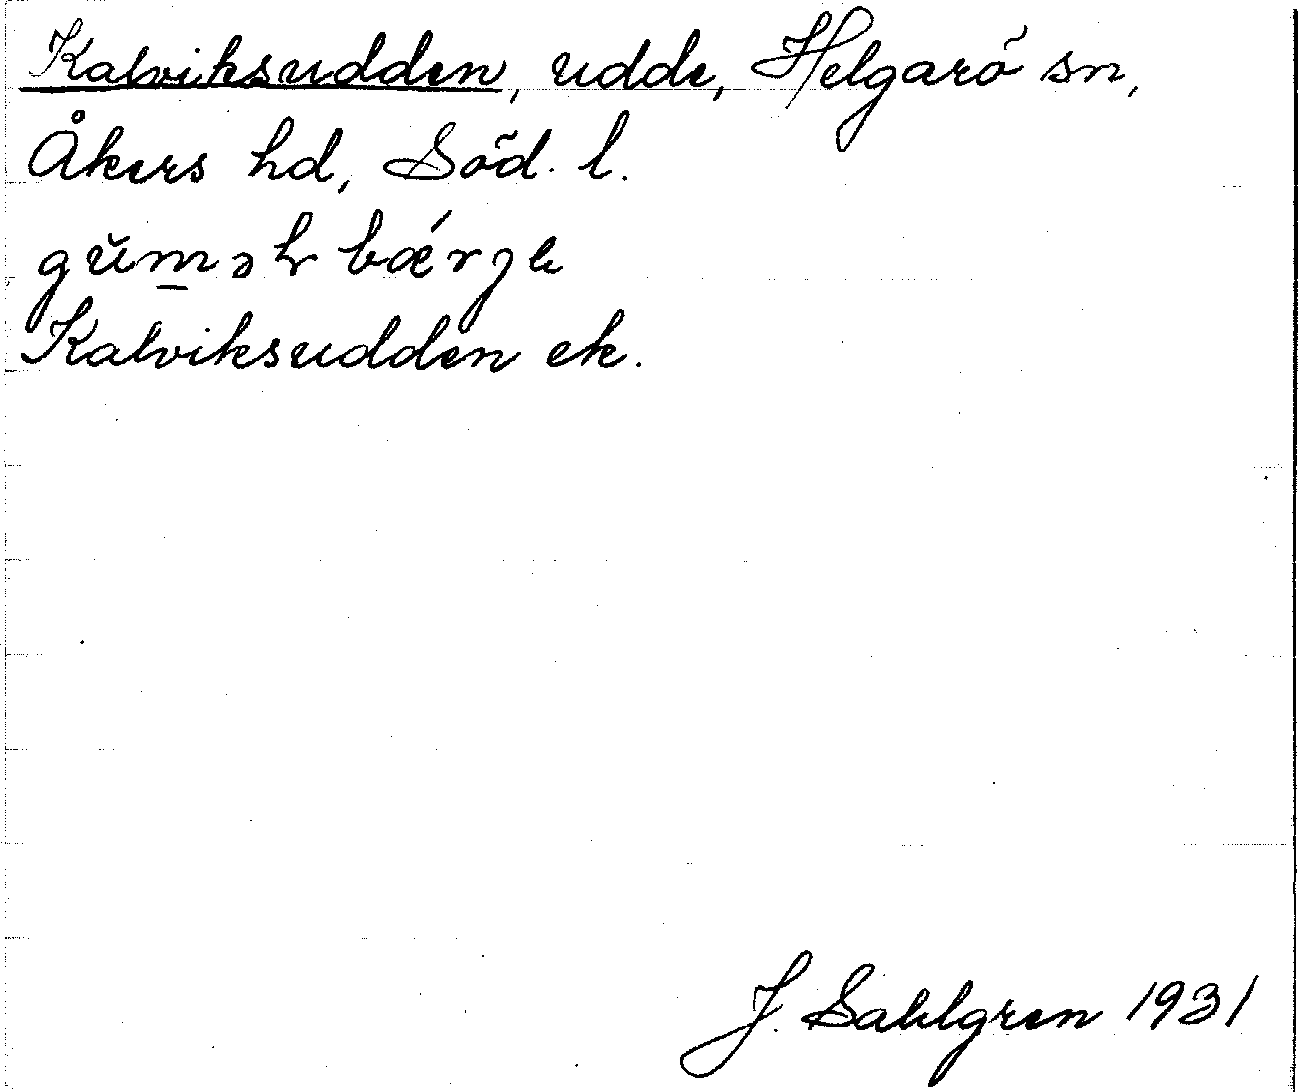 Kalviksudden, udde, Helgarö sn,
Åkers hd, Söd. l.
Kalviksudden ek.
J. Sahlgren 1931